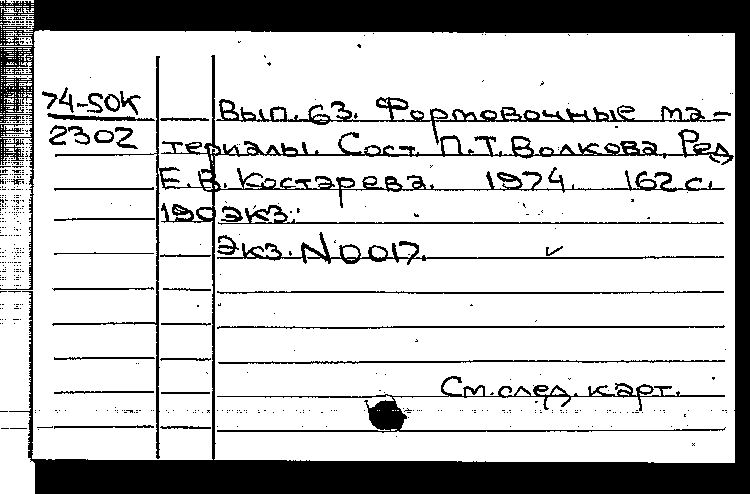 74-50К
2302
Вып. 63. Формовочные ма-
териалы. Сост. П.Т. Волкова. Ред.
Е.В. Костарева. 1974. 162 с.
190 экз.
Экз. N 0017.
См. след. карт.